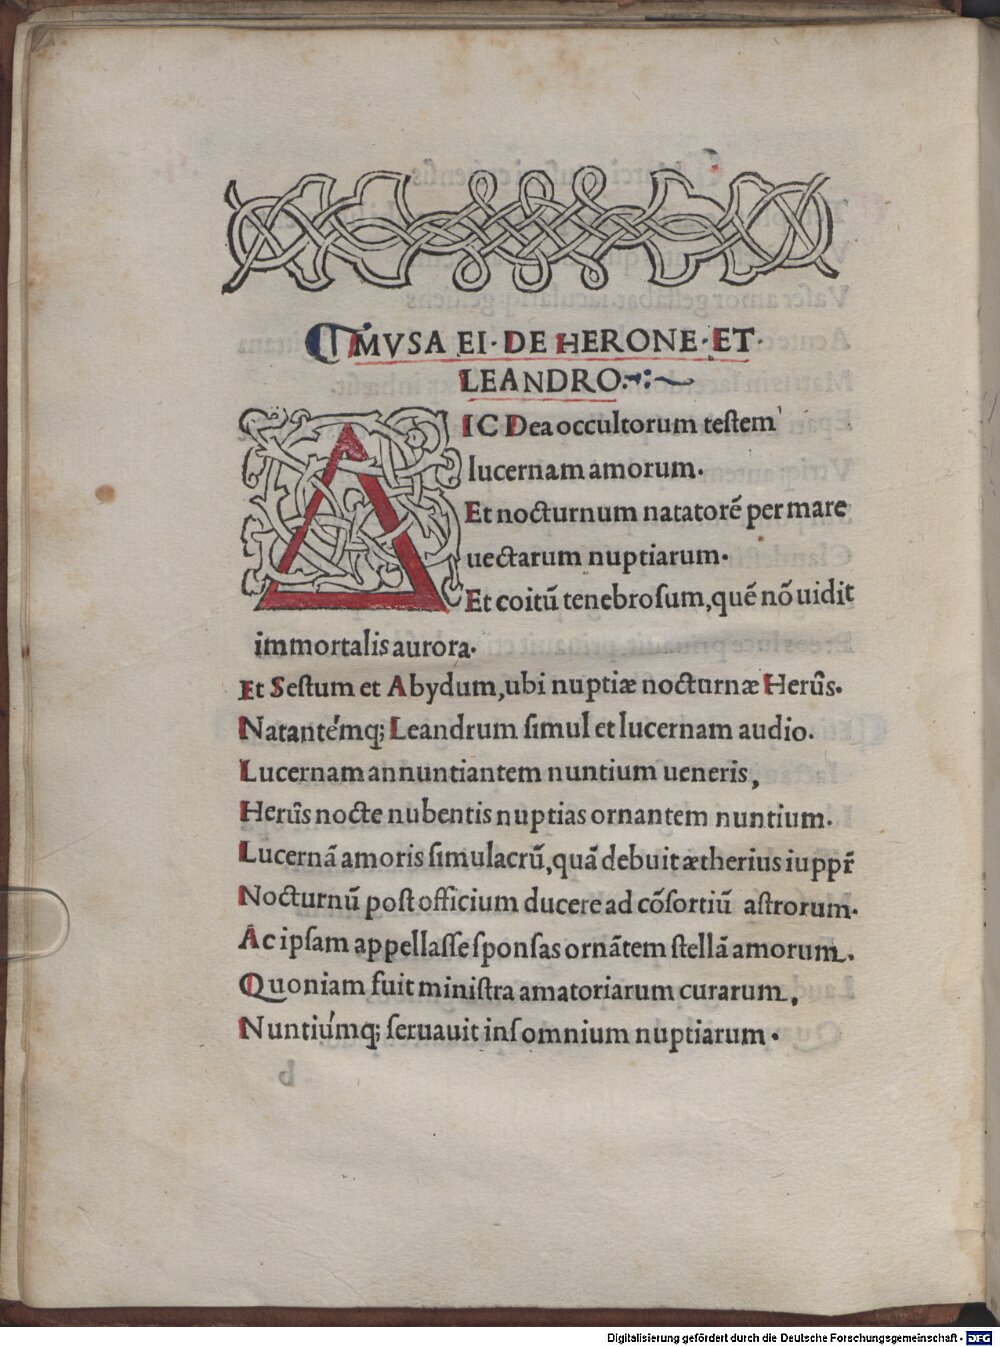 MVSA EI· DE HERONE· ET·
LEANDRO.
IC Dea occultorum teſtem
lucernam amorum.
Et nocturnum natatorē per mare
uectarum nuptiarum.
Et coitū tenebroſum, quē nō uidit
immortalis aurora.
Et Seſtum et Abydum, ubi nuptiæ nocturnæ Herûs.
Natantémq; Leandrum ſimul et lucernam audio.
Lucernam annuntiantem nuntium ueneris,
Herûs nocte nubentis nuptias ornantem nuntium.
Lucernā amoris ſimulacrū, quā debuit ætherius iuppr̄
Nocturnū poſt officium ducere ad cōſortiū aſtrorum.
Ac ipſam appellaſſe ſponſas ornātem ſtellā amorum.
Quoniam fuit miniſtra amatoriarum curarum,
Nuntiúmq; ſeruauit inſomnium nuptiarum.
Digitalisierung gefördert durch die Deutsche Forschungsgemeinschaft - DFG